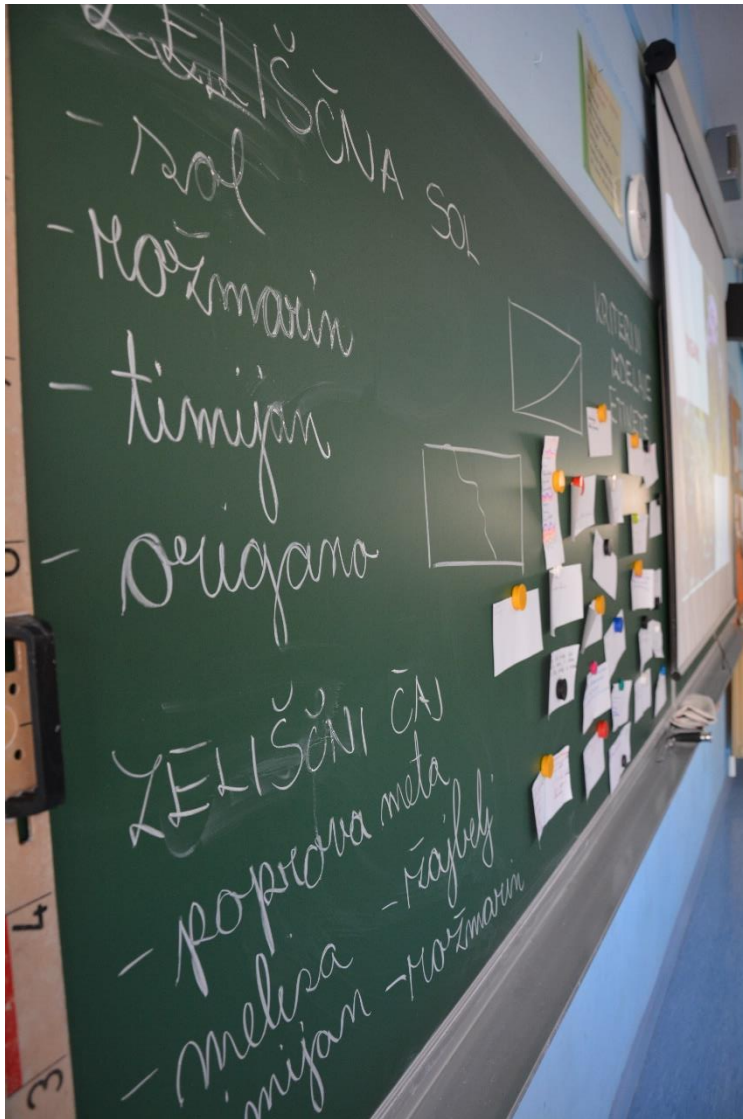 ZELIŠČNA SOL
- sol
- rožmarin
- timijan
- origano
ZELIŠČNI ČAJ
- poprova meta
- melisa - žajbelj
timijan - rožmarin
KRITERIJI
IZDELAVE
ETIKETE
4
3